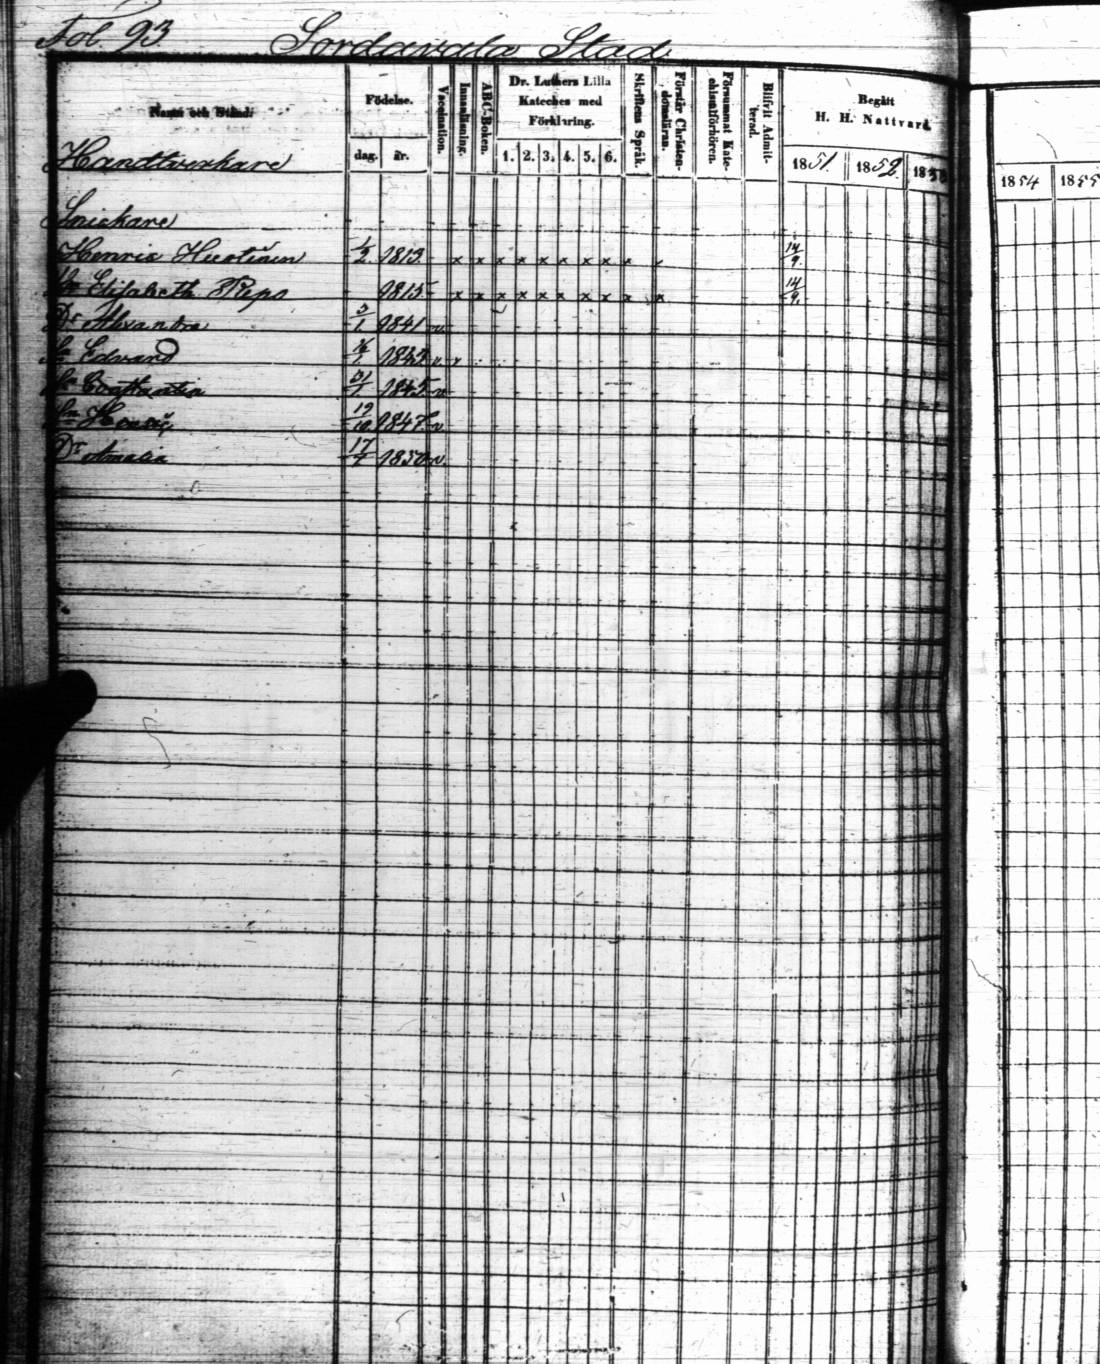 Fol. 93. Sordavala Stad.
Namn och Stånd: Födelse. dag. år. Vaccination. Innanläsning. ABC-Boken. Dr. Luthers Lilla Kateches med Förklaring. 1. 2. 3. 4. 5. 6. Skriftens Språk. Förstår Christendomsläran. Försummat Katechismiförhören. Blifvit Admitterad. Begått H. H. Nattvard. 1851. 1852. 1853 1854 1855
Handtverkare
Snickare
Henric 1/2 1813 x x x x x x x x x 14/9.
Elisabeth Repo 1815 x x x x x x x x x x 14/9.
Dr Alexandra 3/1 1841 v
Sn Edvard 1843 v
Sn Constantin 31/7 1845 v
Sn Henric 19/10 1847 v
Dr Amalia 17/7 1850 v.